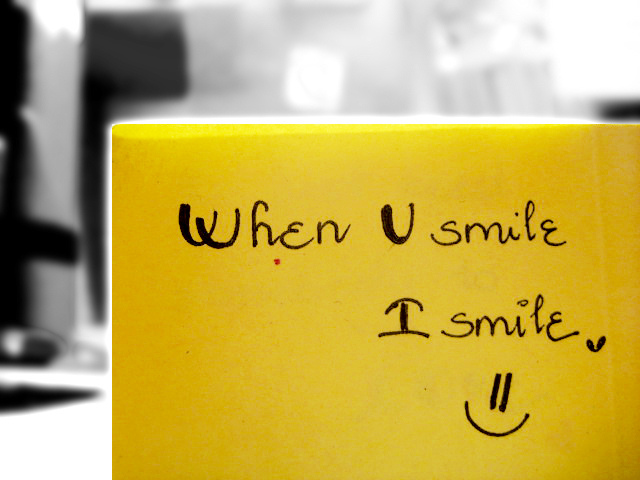 When U smile
I smile